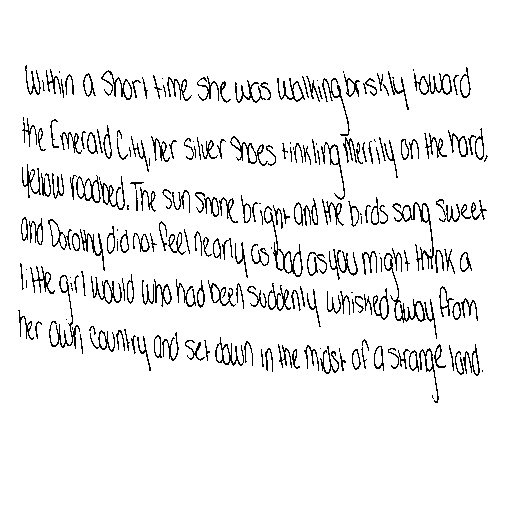 Within a short time she was walking briskly toward
the Emerald City, her Silver Shoes tinkling merrily on the hard,
yellow roadbed. The sun shone bright and the birds sang sweet
and Dorothy did not feel nearly as bad as you might think a
little girl would who had been suddenly whisked away from
her own country and set down in the midst of a strange land.